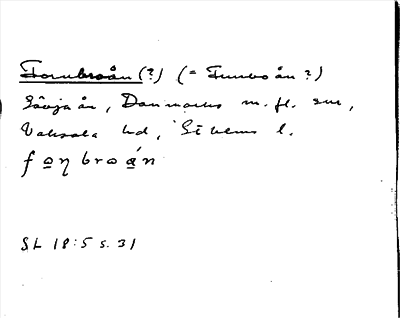 Fornbroån (?) (= Funboån?)
Sävjaån, Danmarks m. fl. snr,
Vaksala hd, Sthlms l.
fo̲ŋbroá̲n
SL 18:5 s. 31